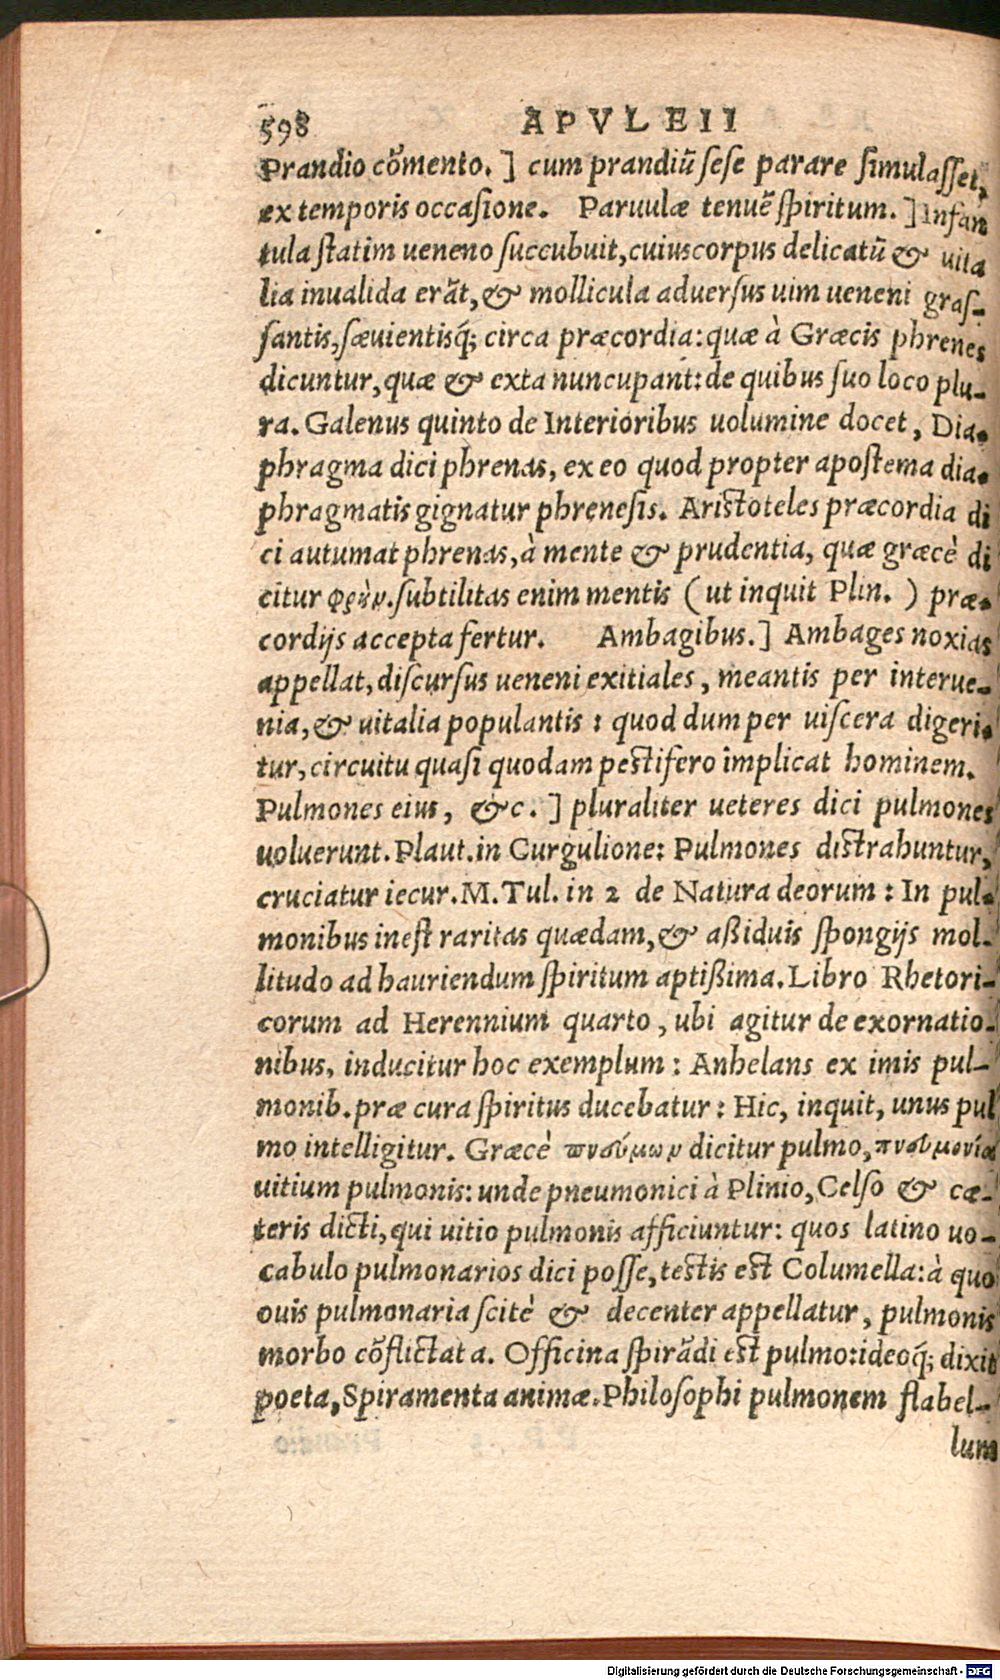 598 APVLEII
Prandio cōmento.] cum prandiū ſeſe parare ſimulaſſet,
ex temporis occaſione. Paruulæ tenuē ſpiritum.] Infan
tula ſtatim ueneno ſuccubuit, cuius corpus delicatū & uita
lia inualida erāt, & mollicula aduerſus uim ueneni graſ-
ſantis, ſæuientisq́; circa præcordia: quæ à Græcis phrenes
dicuntur, quæ & exta nuncupant: de quibus ſuo loco plu-
ra. Galenus quinto de Interioribus uolumine docet, Dia-
phragma dici phrenas, ex eo quod propter apoſtema dia-
phragmatis gignatur phreneſis. Ariſtoteles præcordia di
ci autumat phrenas, à mente & prudentia, quæ græcè di
citur φρὴν. ſubtilitas enim mentis (ut inquit Plin.) præ-
cordijs accepta fertur. Ambagibus.] Ambages noxias
appellat, diſcurſus ueneni exitiales, meantis per interue-
nia, & uitalia populantis: quod dum per uiſcera digeri-
tur, circuitu quaſi quodam peſtifero implicat hominem.
Pulmones eius, &c.] pluraliter ueteres dici pulmones
uoluerunt. Plaut. in Curgulione: Pulmones diſtrahuntur,
cruciatur iecur. M. Tul. in 2 de Natura deorum: In pul-
monibus ineſt raritas quædam, & aßiduis ſpongijs mol-
litudo ad hauriendum ſpiritum aptißima. Libro Rhetori-
corum ad Herennium quarto, ubi agitur de exornatio-
nibus, inducitur hoc exemplum: Anhelans ex imis pul-
monib. præ cura ſpiritus ducebatur: Hic, inquit, unus pul
mo intelligitur. Græcè πνεύμων dicitur pulmo, πνευμονία
uitium pulmonis: unde pneumonici à Plinio, Celſo & cæ-
teris dicti, qui uitio pulmonis afficiuntur: quos latino uo-
cabulo pulmonarios dici poſſe, teſtis eſt Columella: à quo
ouis pulmonaria ſcitè & decenter appellatur, pulmonis
morbo cōflictata. Officina ſpirādi eſt pulmo: ideoq́; dixit
poeta, Spiramenta animæ. Philoſophi pulmonem flabel-
lum
Digitalisierung gefördert durch die Deutsche Forschungsgemeinschaft - DFG